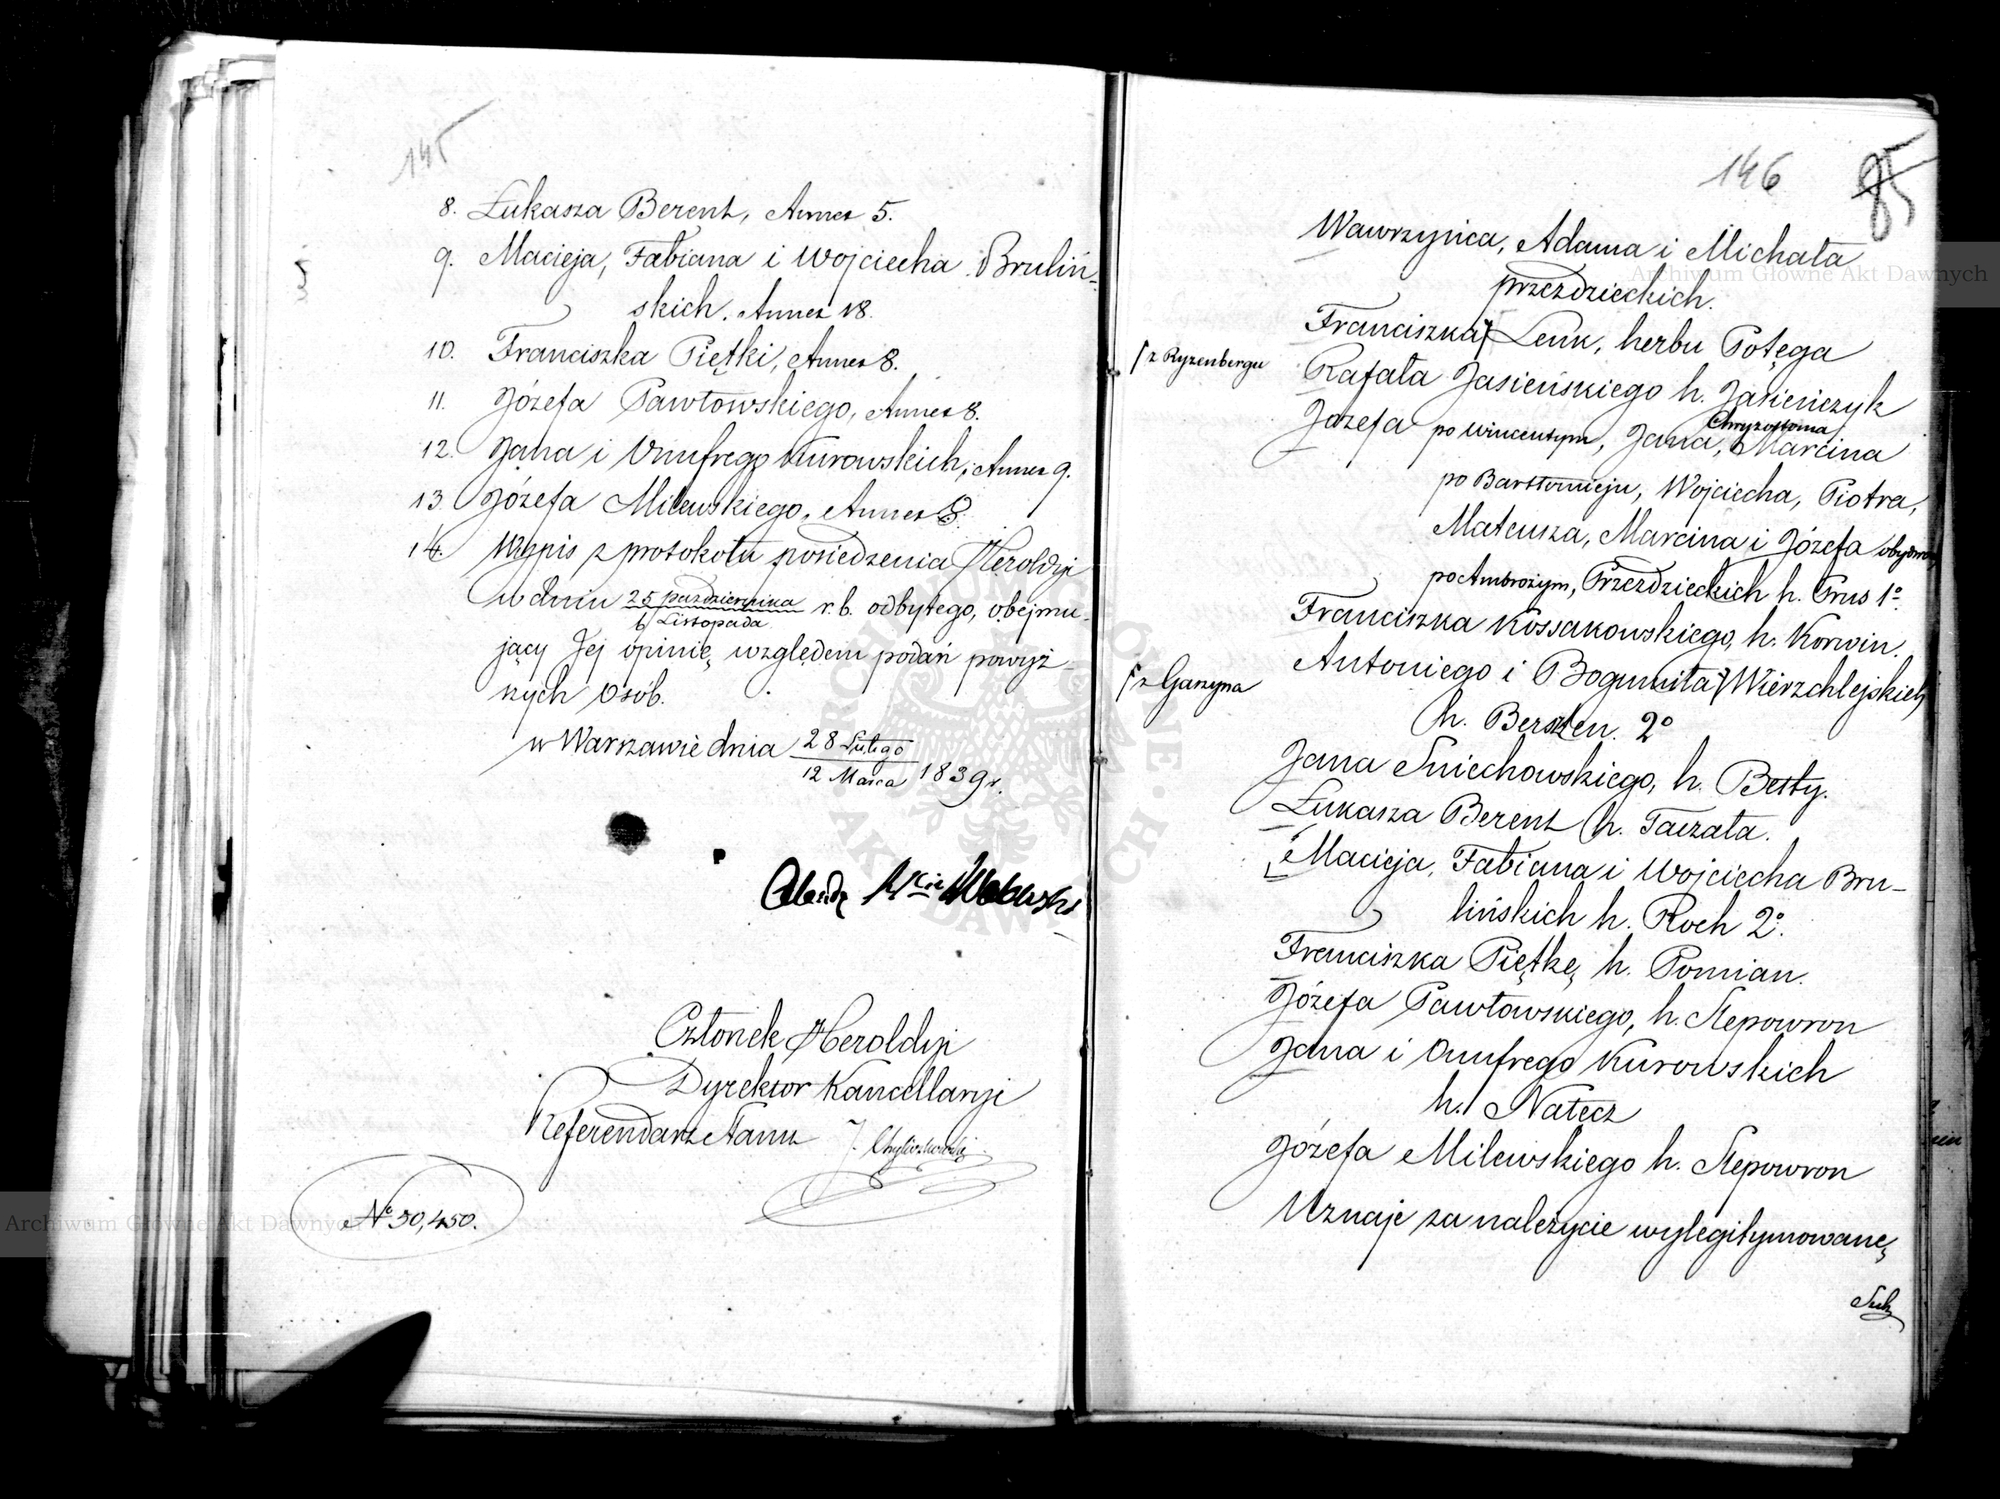 145
8. Łukasza Berent, Annex 5.
9. Macieja, Fabiana i Wojciecha Bruliń-
skich. Annex 18.
10. Franciszka Piętki, Annex 8.
11. Józefa Pawłowskiego, Annex 8.
12. Jana i Onufrego Kurowskich, Annex 9.
13. Józefa Milewskiego, Annex 8.
14. Wypis z protokołu posiedzenia Heroldyi
w dniu 25 października r. b. odbytego, obejmu-
6 Listopada
jący Jej opinię względem podań powyż
szych osób.
w Warszawie dnia 28 Lutego
12 Marca 1839 r.
Członek Heroldyi
Dyrektor Kancellaryi
Referendarz Stanu J.
№ 50,450.
146 85
Wawrzyńca, Adama i Michała
Przeździeckich.
Franciszka Lenk, herbu Potęga
z Ryzenbergu
Rafała Jasieńskiego h. Jasieńczyk
Chryzostoma
Józefa po Wincentym, Jana, Marcina
po Bartłomieju, Wojciecha, Piotra,
Mateusza, Marcina i Józefa
po Ambrożym, Przeździeckich h. Prus 1º
Franciszka Kossakowskiego, h. Korwin.
Antoniego i Bogumiła Wierzchlejskich
z
h. Berszten. 2º
Jana Śniechowskiego, h. Belty.
Łukasza Berent h. Taczała.
Macieja, Fabiana i Wojciecha Bru-
lińskich h. Roch 2º.
Franciszka Piętkę, h. Pomian.
Józefa Pawłowskiego, h. Ślepowron
Jana i Onufrego Kurowskich
h. Nałęcz
Józefa Milewskiego h. Ślepowron
Uznaje za należycie wylegitymowane,
Archiwum Główne Akt Dawnych
Archiwum Główne Akt Dawnych